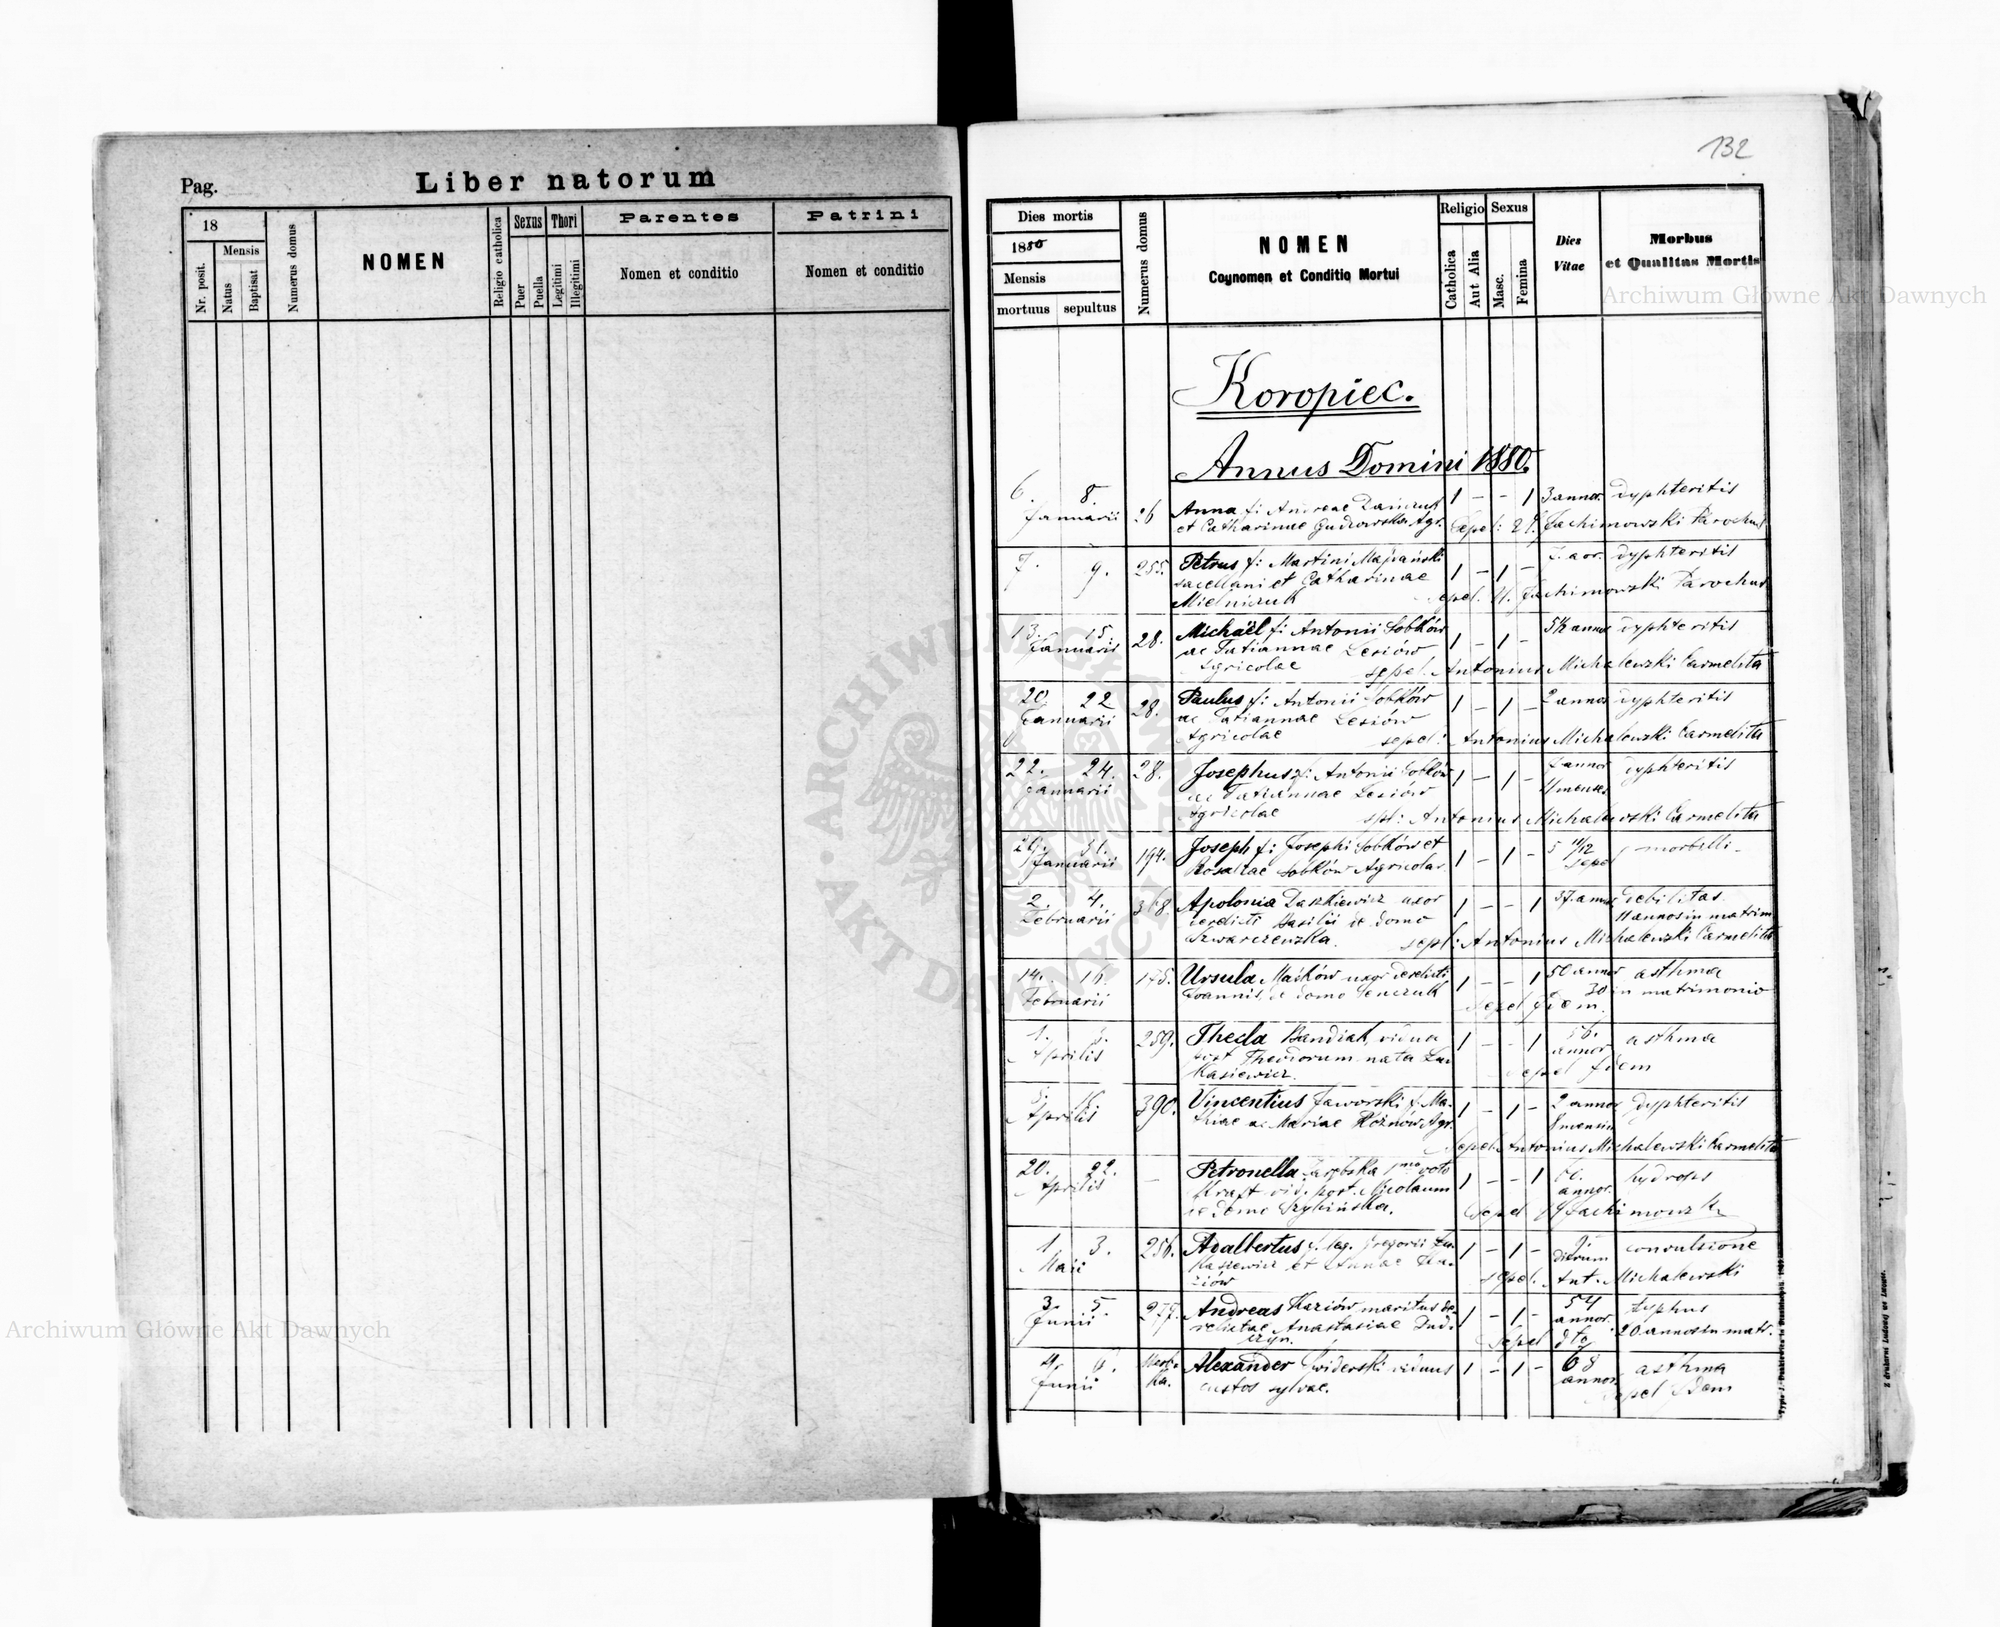 Pag.
Liber natorum
18
Mensis
Nr. posit.
Natus
Baptisat
Numerus domus
NOMEN
Religio catholica
Sexus
Puer
Puella
Thori
Legitimi
Illegitimi
Parentes
Nomen et conditio
Patrini
Nomen et conditio
132
Dies mortis
1880
Mensis
mortuus sepultus
Numerus domus
NOMEN
Coynomen et Conditio Mortui
Religio
Catholica
Aut Alia
Sexus
Masc.
Femina
Dies
Vitae
Morbus
et Qualitas Mortis
Archiwum Główne Akt Dawnych
Koropiec.
Annus Domini 1880.
6. 8. Januarii 26 Anna f: Andreae 1 - - 1 3 annor. dyphteritis
et Catharinae Gudzowska Agr. Sepel: Jachimowski Parochus
7. 9. 255. Petrus f: Martini Majpański 1 - 1 - dyphteritis
et Catharinae
Mielniczuk sepel. Jachimowski Parochus
13. 15. Januarii 28. Michaël f: Antonii Sobków 1 - 1 - 5½ annor dyphteritis
ac Tatiannae Lesiów
Agricolae sepel. Antonius Michalewski Carmelita
20. 22 Januarii 28. Paulus f: Antonii Sobków 1 - 1 - 2 annor dyphteritis
ac Tatiannae Lesiów
Agricolae sepel: Antonius Michalewski Carmelita
22. 24. Januarii 28. Josephus f: Antonii Sobków 1 - 1 - 7 annor dyphteritis
ac Tatiannae Lesiów 11 menses
Agricolae spl: Antonius Michalewski Carmelita
29. 31. Januarii 194. Joseph f: Josephi Sobków et 1 - 1 - 5 11/12 morbilli
Rosaliae Sobków Agricolar. sepel
2. 4. Februarii 368. Apolonia Daszkiewicz uxor 1 - - 1 37 annor debilitas
derelicti Basilii de domo 11 annos in matrim
sepl: Antonius Michalewski Carmelita
14. 16. Februarii 175. Ursula Maśków uxor derelicti 1 - - 1 50 annor asthma
Joannis de domo Senczuk 30 in matrimonio
Sepel Idem.
1. Aprilis 259. Thecla Bandiak, vidua 1 - - 1 56. annor asthma
post Theodorum nata Łu-
kasiewicz. Sepel Idem
Aprilis 390. Vincentius Jaworski f. Ma- 1 - 1 - 2 annor dyphteritis
thiae ac Mariae Agr. 8 mensium
Sepel. Antonius Michalewski Carmelita
20. 22. Aprilis - Petronella 1mo voto 1 - - 1 annor. hydrops
Kraft vid. post. Nicolaum
de domo Sepel Jachimowski
1 3. Maii 256. Adalbertus f. leg. Gregorii Łu- 1 - 1 - 9. dierum convulsione
kasiewicz et Annae Ka-
ziów sepel. Ant. Michalewski
3. 5. Junii 277. Andreas Kaziów maritus de- 1 - 1 - 54 annor. typhus
relictae Anastasiae Dud- 20 annos in matr.
Sepel dto
4. 6. Junii Alexander Świderski viduus 1 - 1 - 68 annor. asthma
custos sylvae. Sepel Idem
Archiwum Główne Akt Dawnych
ARCHIWUM GŁÓWNE AKT DAWNYCH
Z drukarni Ludowej we Lwowie.